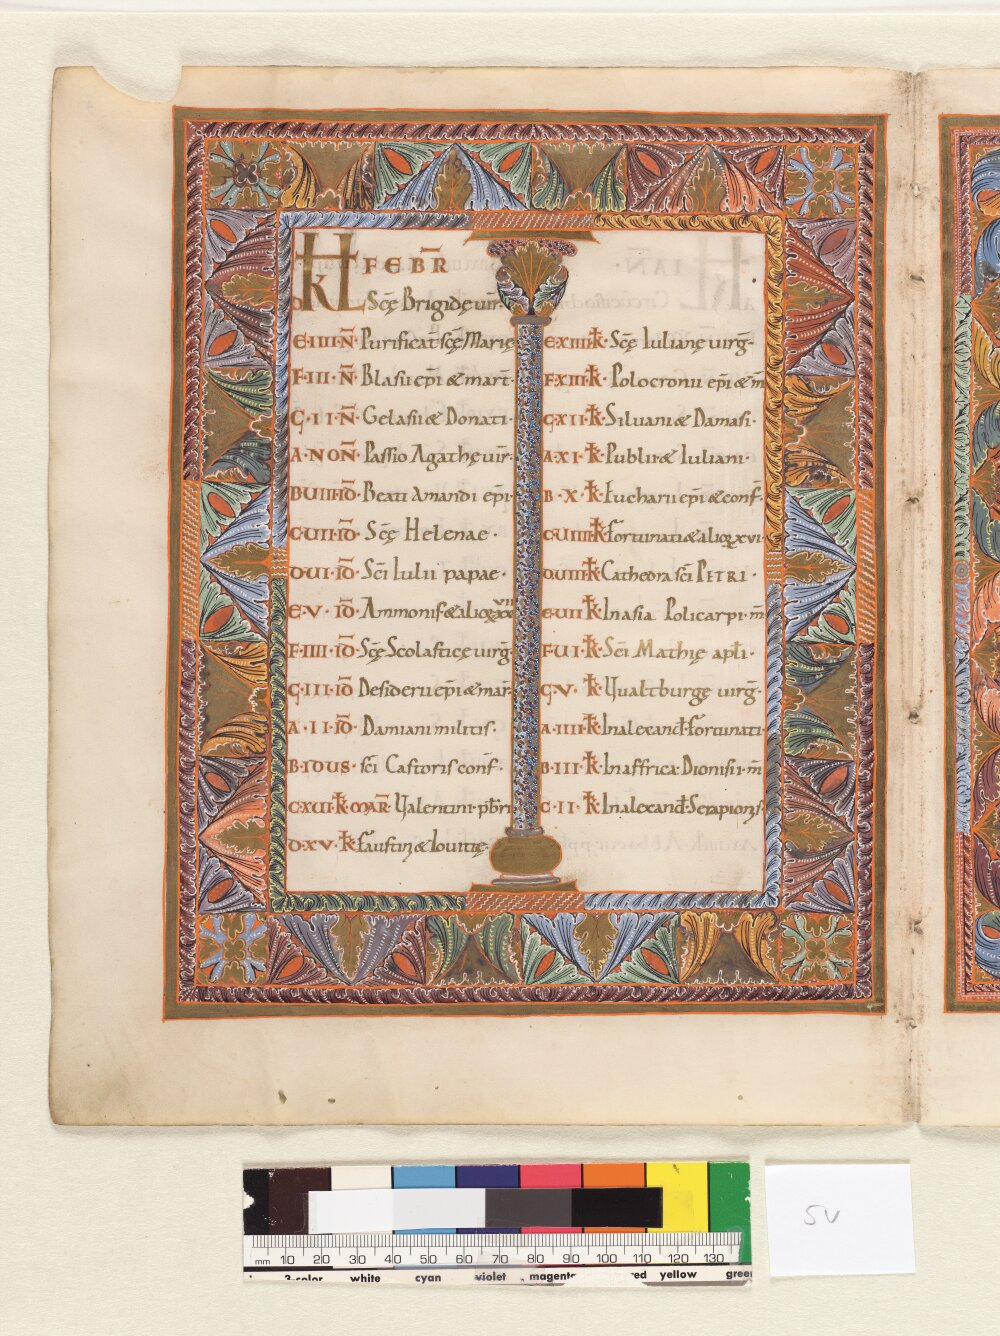 KL FEBR̄
D Sc̄ę Brigidę uir̄·
E·IIII·N̄· Purificat sc̄ę Marię
F·III·N̄· Blasii ep̄i & mart̄·
G·II·N̄· Gelasii & Donati·
A·NON̄· Passio Agathę uir̄·
B·VIII·ID̄· Beati Amandi ep̄i·
C·VII·ID̄· Sc̄ę Helenae·
D·VI·ID̄· Sc̄i Iulii papae·
E·V·ID̄· Ammonis & alioꝝ xxvii
F·IIII·ID̄· Sc̄ę Scolasticę uirḡ·
G·III·ID̄ Desiderii ep̄i & mar̄·
A·II·ID̄· Damiani militis·
B·IDUS· sc̄i Castoris conf̄·
C·XVI·k̄l·MAR̄· Ualentini·pb̄ri
D·XV·k̄l· faustini & Iouittę
E·XIIII·k̄l· Sc̄ę Iulianę uirḡ·
F·XIII·k̄l· Polocronii ep̄i & m̄
G·XII·k̄l· Siluani & Damasi·
A·XI·k̄l· Publii & Iuliani·
B·X·k̄l· Eucharii ep̄i & conf̄·
C·VIIII·k̄l· fortunati & alioꝝ xxvi
D·VIII·k̄l· Cathedra sc̄i PETRI·
E·VII·k̄l· In asia Policarpi·m̄
F·VI·k̄l· Sc̄i Mathię apl̄i·
G·V·k̄l· Uualtburgę uirḡ·
A·IIII·k̄l· In alexand̄·fortunati·
B·III·k̄l· In affrica Dionisii·m̄
C·II·k̄l· In alexand̄·Serapionis
5v
mm 10 20 30 40 50 60 70 80 90 100 110 120 130
3-color white cyan violet magenta red yellow green